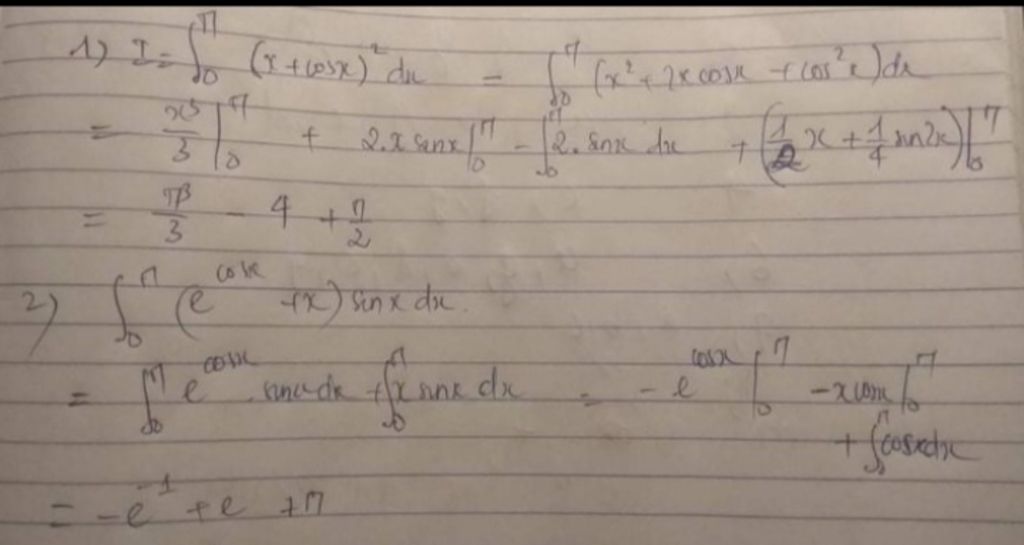 1) I = ∫₀^π (x + cosx)² dx = ∫₀^π (x² + 2x cosx + cos²x) dx
= x³/3 |₀^π + 2.x sinx |₀^π - ∫₀^π 2. sinx dx + (1/2 x + 1/4 sin2x) |₀^π
= π³/3 - 4 + π/2
2) ∫₀^π (e^cosx + x) sinx dx.
= ∫₀^π e^cosx . sinx dx + ∫₀^π x sinx dx = - e^cosx |₀^π - x cosx |₀^π
+ ∫₀^π cosx dx
= -e^-1 + e + π